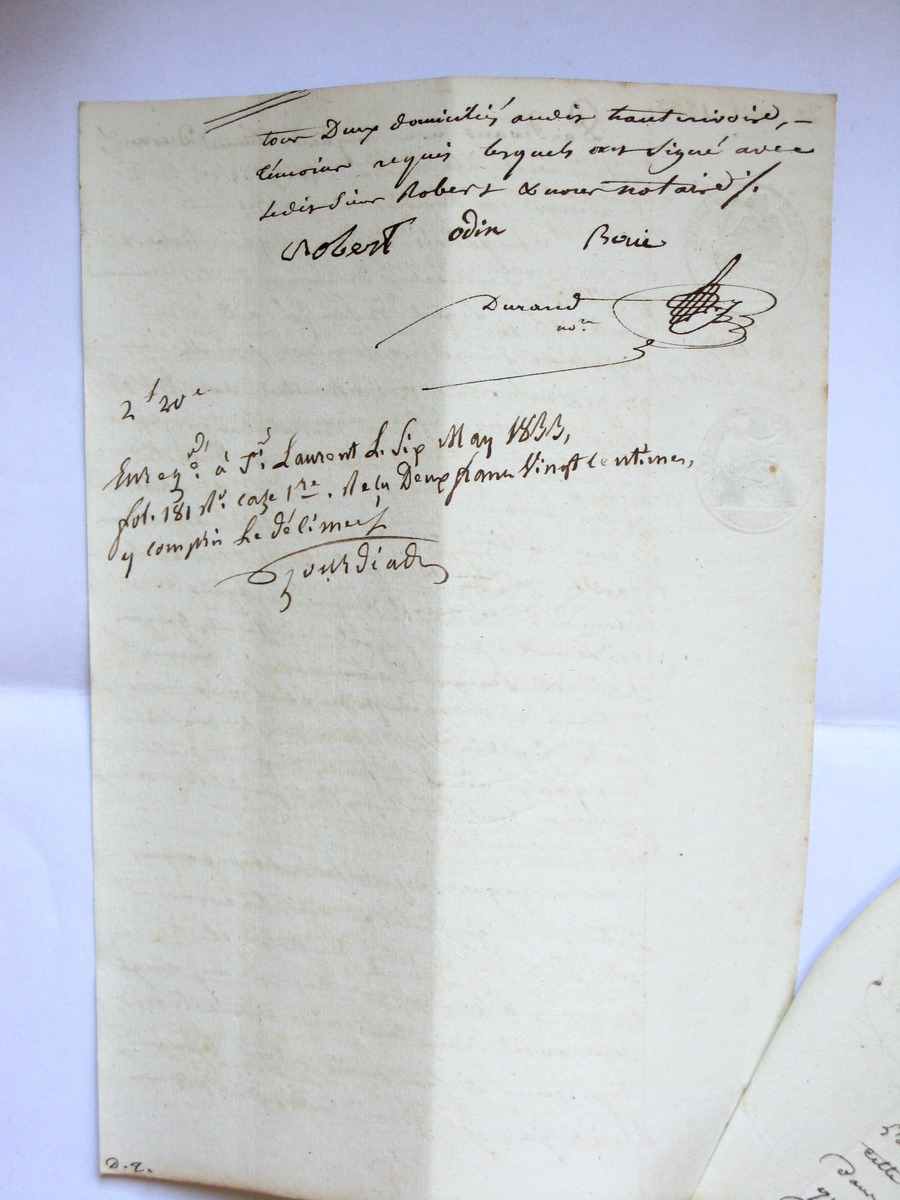 tous Deux domiciliés audit hauterivoire, –
témoins requis lesquels ont Signé avec
ledit Sieur Robert & nous notaire ./.
Robert odin Berie
Durand
no.re
2f 20c
Enregé. à St. Laurent Le Six May 1833,
fol. 181 Ro. case 1re. Recu Deux francs Vingt centimes,
y compris Le décime
D.2.